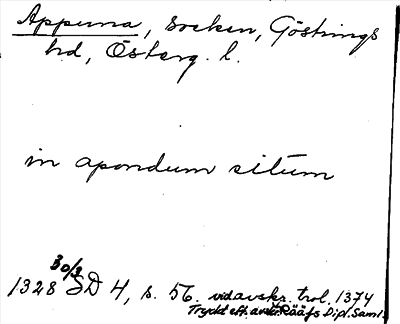 Appuna, socken, Göstrings
hd, Österg. l.
in apondum situm
30/3
1328 SD 4, s. 56. vidavskr. trol. 1374
Tryckt eft. avskr. Rääfs Dipl. Saml.